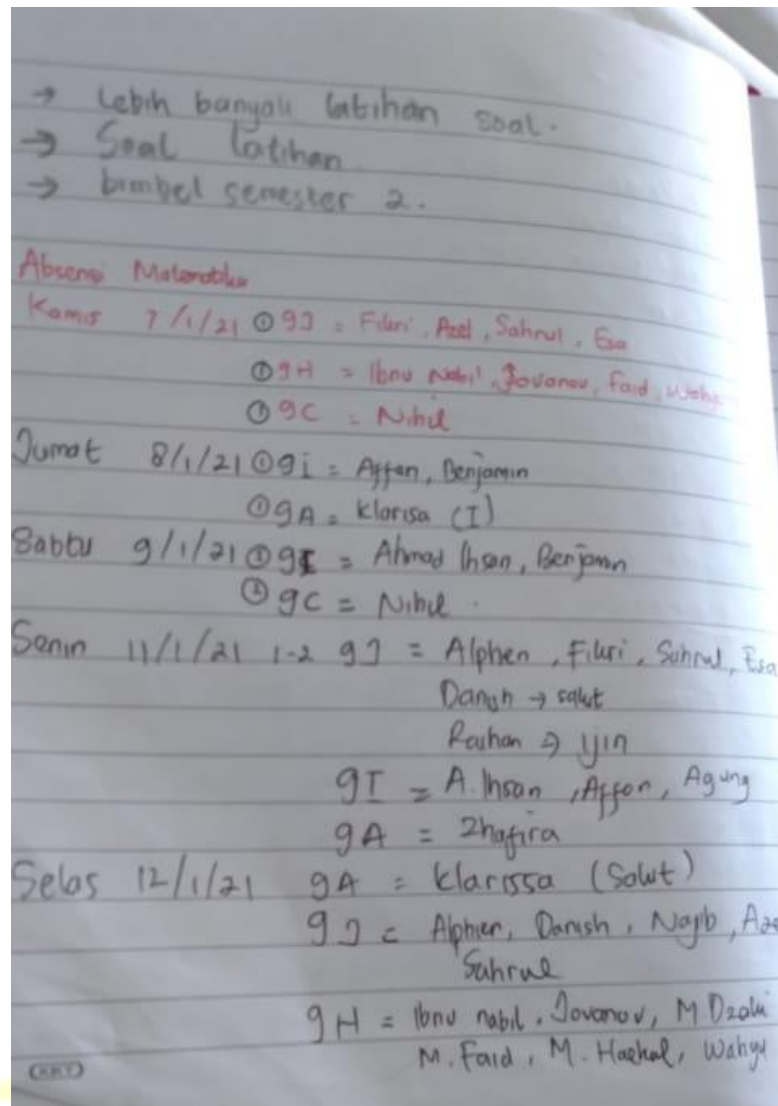 → Lebih banyak latihan soal.
→ Soal latihan
→ bimbel semester 2.
Absensi Matematika
Kamis 7/1/21 ① 9J = Fikri, Azel, Sahrul, Esa
① 9H = Ibnu Nabil, Jovanov, Faid, Wahyu
① 9C = Nihil
Jumat 8/1/21 ① 9i = Affan, Benjamin
① 9A = Klarisa (I)
Sabtu 9/1/21 ① 9I = Ahmad Ihsan, Benjamin
② 9C = Nihil.
Senin 11/1/21 1-2 9J = Alphen, Fikri, Sahrul, Esa
Danish → sakit
Raihan → ijin
9I = A. Ihsan, Affan, Agung
9A = Zhafira
Selas 12/1/21 9A = Klarissa (Sakit)
9J = Alphien, Danish, Najib, Aze
Sahrul
9H = Ibnu nabil, Jovanov, M Dzaki
M. Faid, M. Haekal, Wahyu